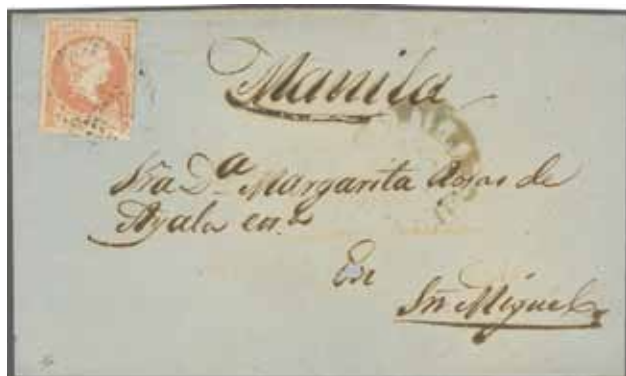 Manila
Sra Dª Margarita Rojas de
Ayala en
En
Sn Miguel